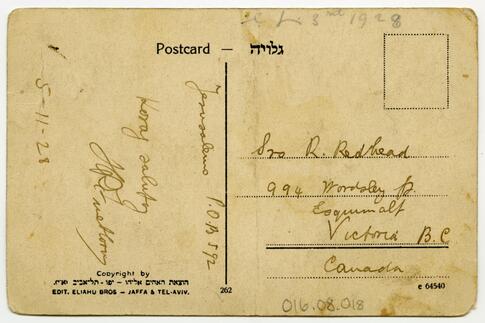 3rd 1928
Postcard — גלויה
5-11-28
Koraj salutoj
Jerusalemo P.O.B 592
Sro R. Redhead
994 Wordsley St
Esquimalt
Victoria B.C
Canada
Copyright by
הוצאת האחים אליהו - יפו - תל-אביב
EDIT. ELIAHU BROS – JAFFA & TEL-AVIV.
262
e 64540
016.08.018